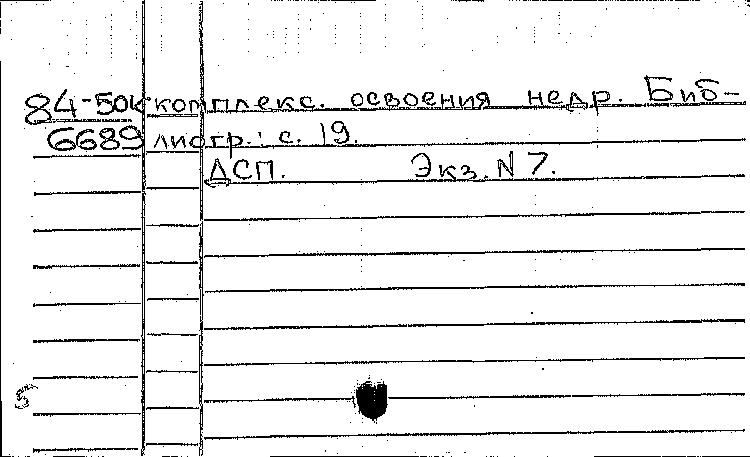 84-50к комплекс. освоения недр. Биб-
6689 лиогр.: с. 19.
ДСП. Экз. N 7.
5